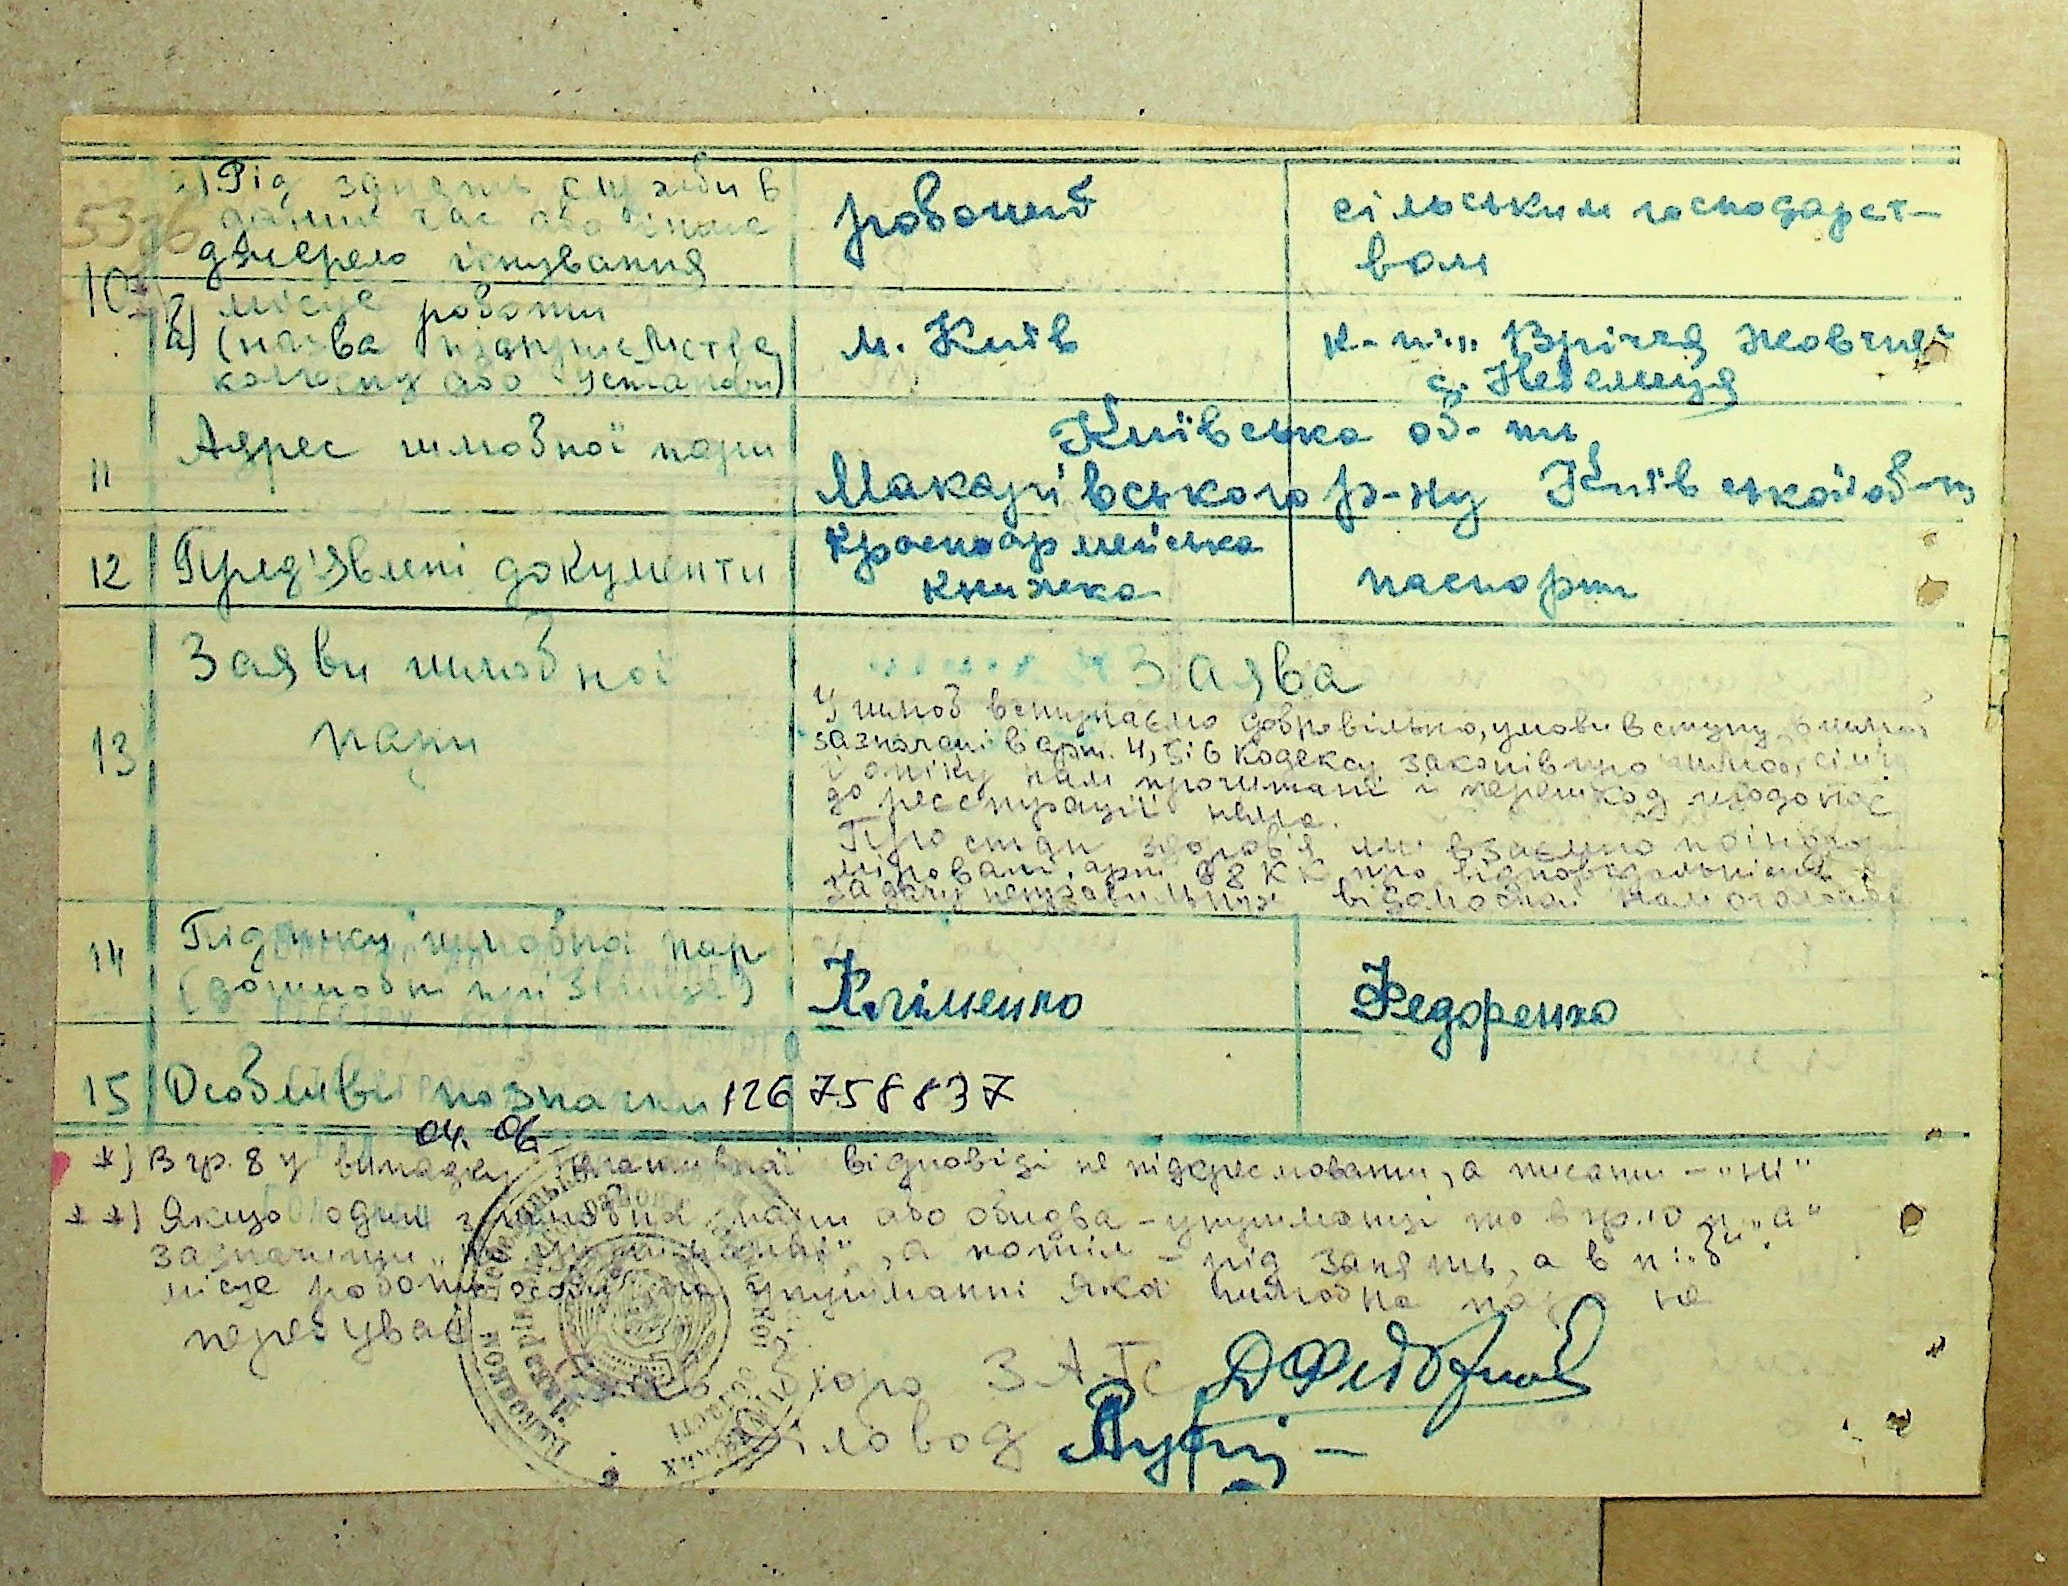 Рід занять служби в робочий сільським господарст-
даний час або інше вом
джерело існування
53зв
10**)
місце роботи
а) (назва підприємства, м. Київ к-п "Вріччя Жовтня"
колгоспу або установи) с. Небелиця
11 Адрес шлюбної пари Київська об-ть
Макарівського р-ну Київської об-ті
12 Пред'явлені документи Красноармейська паспорт
книжка
13 Заяви шлюбної
пари
Заява
У шлюб вступаємо добровільно, умови вступу в шлюб
зазначені в арт. 4, 5 і 6 Кодексу законів про шлюб, сім'ю
і опіку нам прочитані і перешкод щодо нас
до реєстрації нема.
Про стан здоров'я ми взаємно поінфор-
мировані, арт 88 КК про відповідальність
за дачу неправильних відомостей нам оголошено
14 Підписи шлюбної пари Кліменко Федоренко
(дошлюбні прізвища)
15 Особливі позначки 126 758837
04. 06.
*) В гр. 8 у випадку негативної відповіді не підкреслювати, а писати - "ні"
**) Якщо один з шлюбної пари або обидва - утриманці то в гр. 10 п. "а"
зазначити "на утриманні", а потім - рід занять, а в п. "б"
місце роботи особи на утриманні якої шлюбна пара не
перебуває
Зав бюро ЗАГС
Діловод